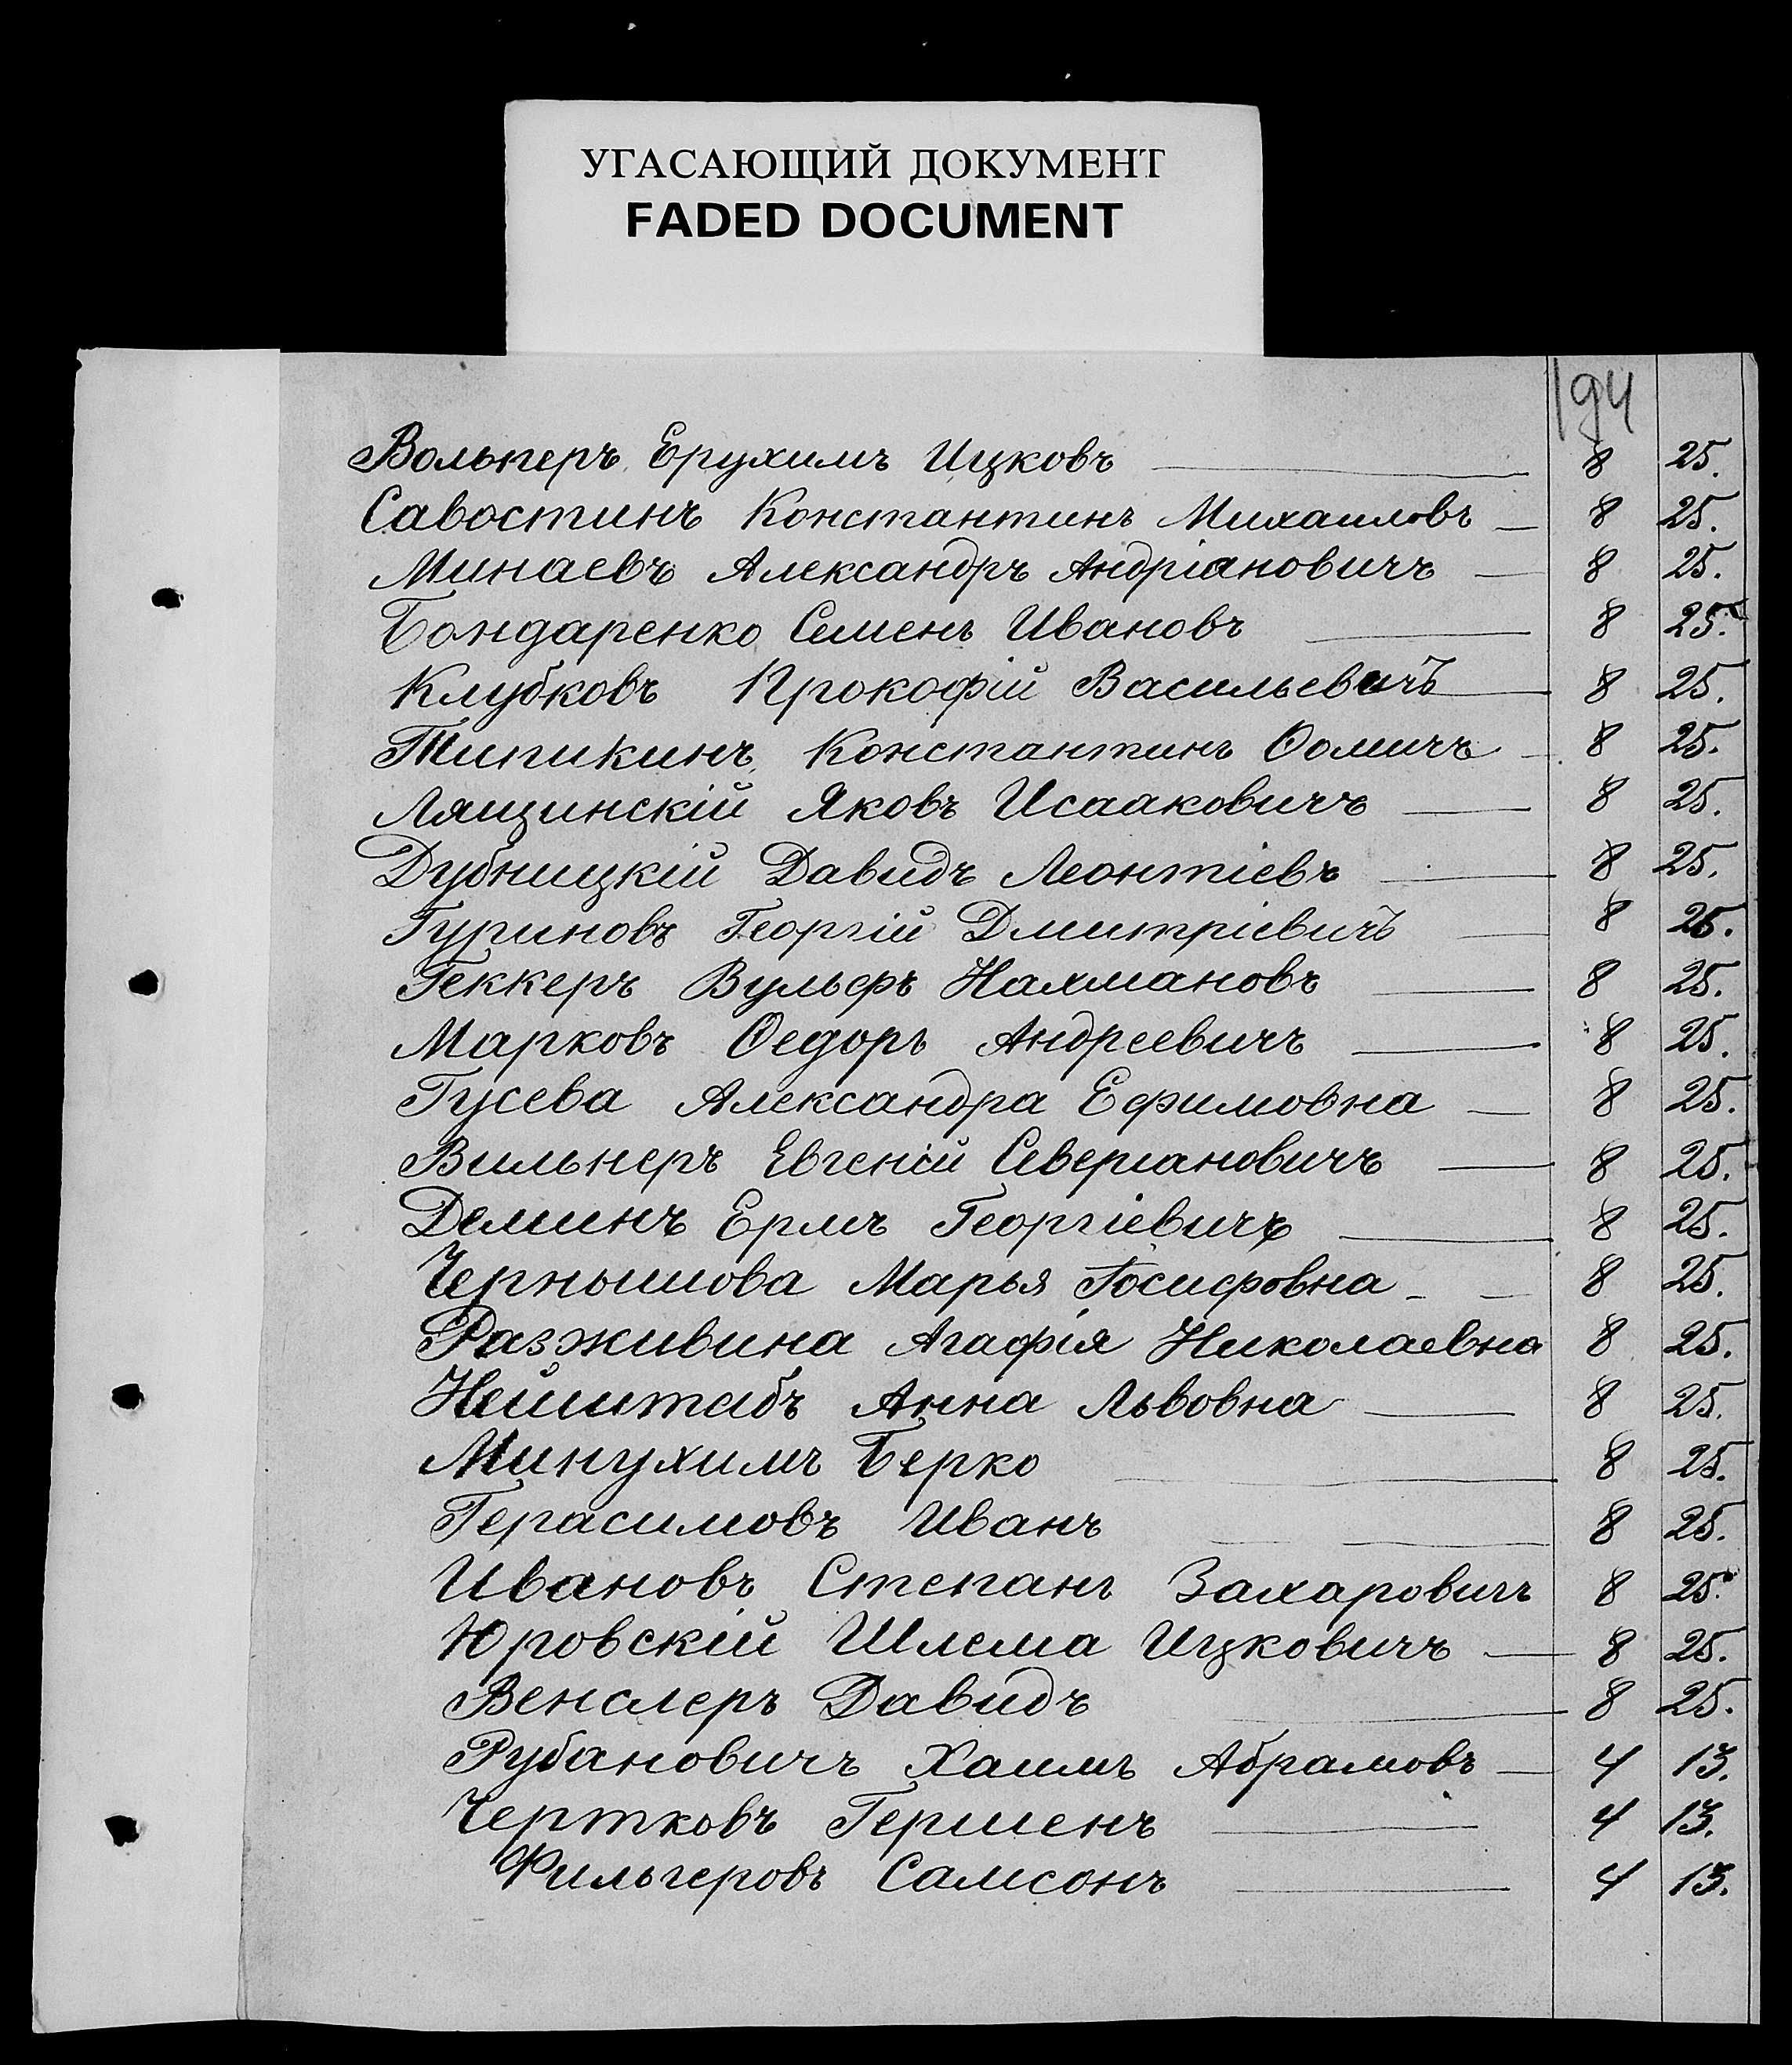 УГАСАЮЩИЙ ДОКУМЕНТ
FADED DOCUMENT
194
Вольперъ Ерухимъ Ицковъ 8 25.
Савостинъ Константинъ Михаиловъ 8 25.
Минаевъ Александръ Андріановичъ 8 25.
Бондаренко Семенъ Ивановъ 8 25.
Клубковъ Прокофій Васильевичъ 8 25.
Типикинъ Константинъ Ѳомичъ 8 25.
Лящинскій Яковъ Исааковичъ 8 25.
Дубницкій Давидъ Леонтіевъ 8 25.
Гуриновъ Георгій Дмитріевичъ 8 25.
Геккеръ Вульфъ Нахмановъ 8 25.
Марковъ Ѳедоръ Андреевичъ 8 25.
Гусева Александра Ефимовна 8 25.
Вильнеръ Евгеній Северіановичъ 8 25.
Деминъ Ермъ Георгіевичъ 8 25.
Чернышова Марья Іосифовна 8 25.
Разживина Агафія Николаевна 8 25.
Нейштабъ Анна Львовна 8 25.
Минухимъ Берко 8 25.
Герасимовъ Иванъ 8 25.
Ивановъ Степанъ Захаровичъ 8 25.
Юровскій Шлема Ицковичъ 8 25.
Венслеръ Давидъ 8 25.
Рубановичъ Хаимъ Абрамовъ 4 13.
Чертковъ Гершенъ 4 13.
Фильгеровъ Самсонъ 4 13.